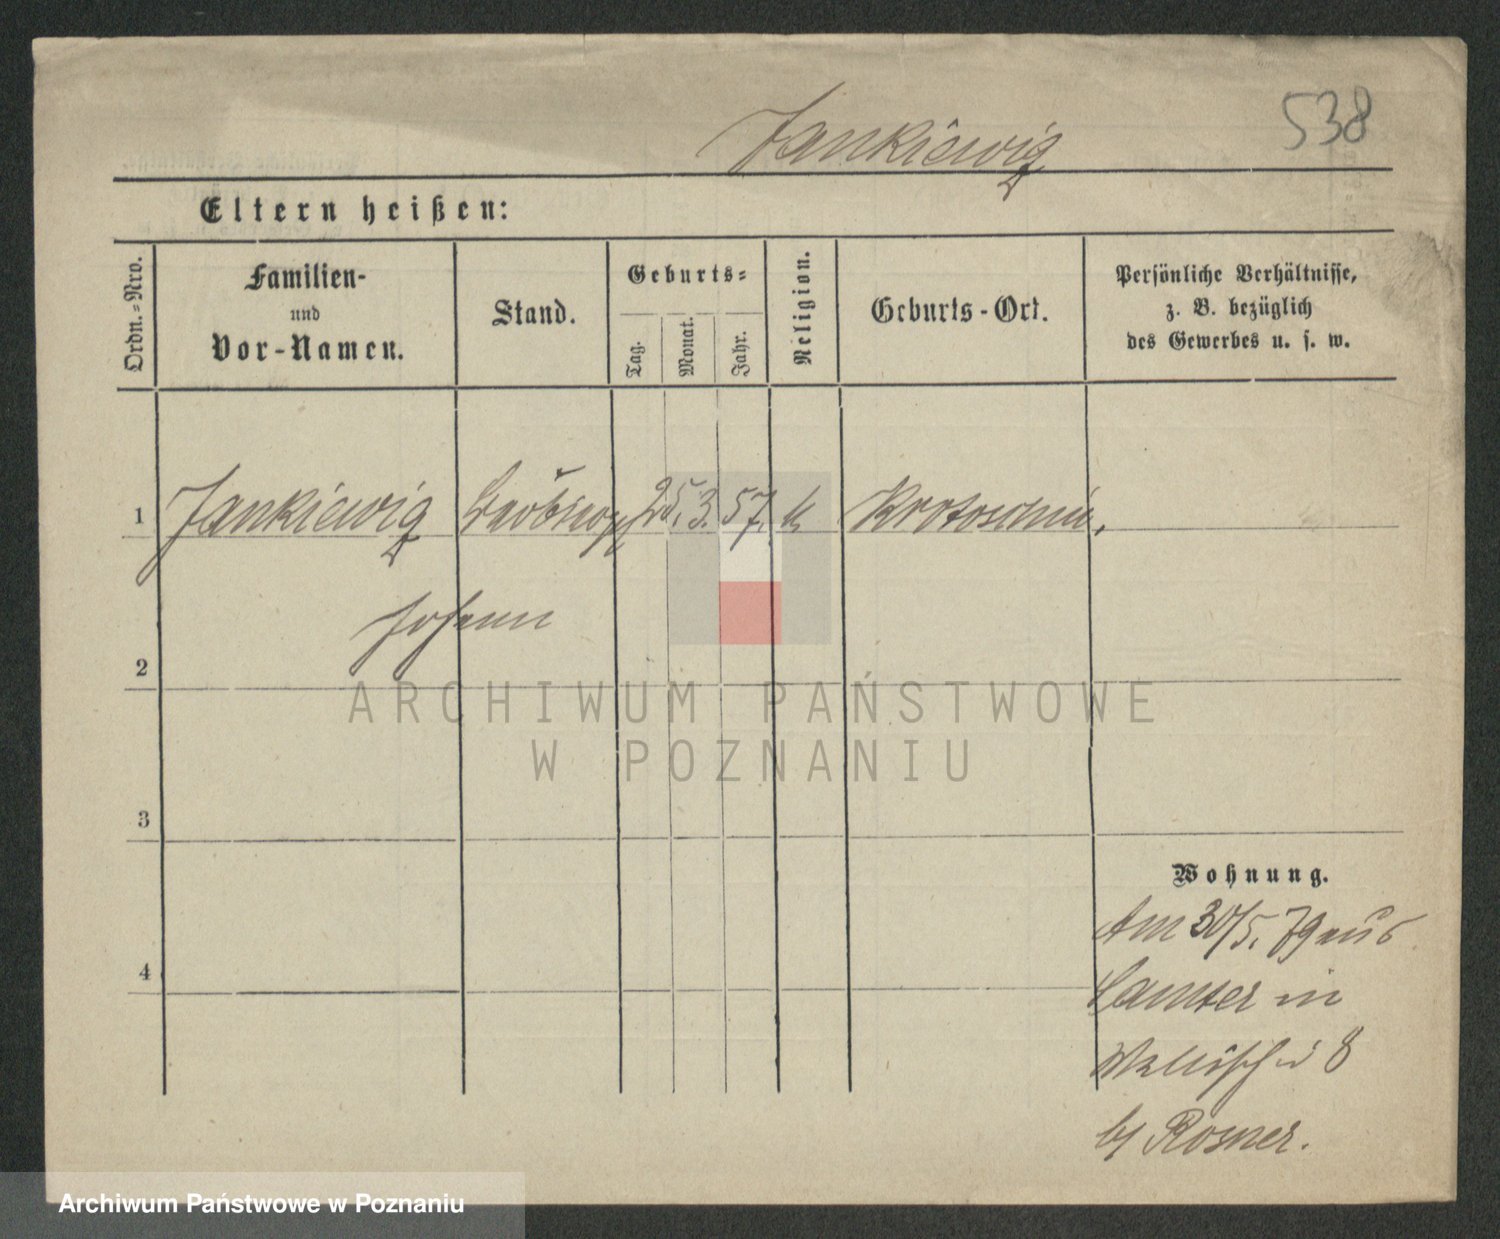 Jankiewiz
538
Eltern heißen:
Ordn.=Nro.
Familien-
und
Vor-Namen.
Stand.
Geburts=
Tag.
Monat.
Jahr.
Religion.
Geburts-Ort.
Persönliche Verhältnisse,
z. B. bezüglich
des Gewerbes u. s. w.
1
Jankiewiz
25. 3. 57. k
Krotoschin.
Johann
2
ARCHIWUM PAŃSTWOWE
W POZNANIU
3
Wohnung.
Am 30/5. 79 aus
4
Samter in
Wallischei 8
b/ Rosner.
Archiwum Państwowe w Poznaniu